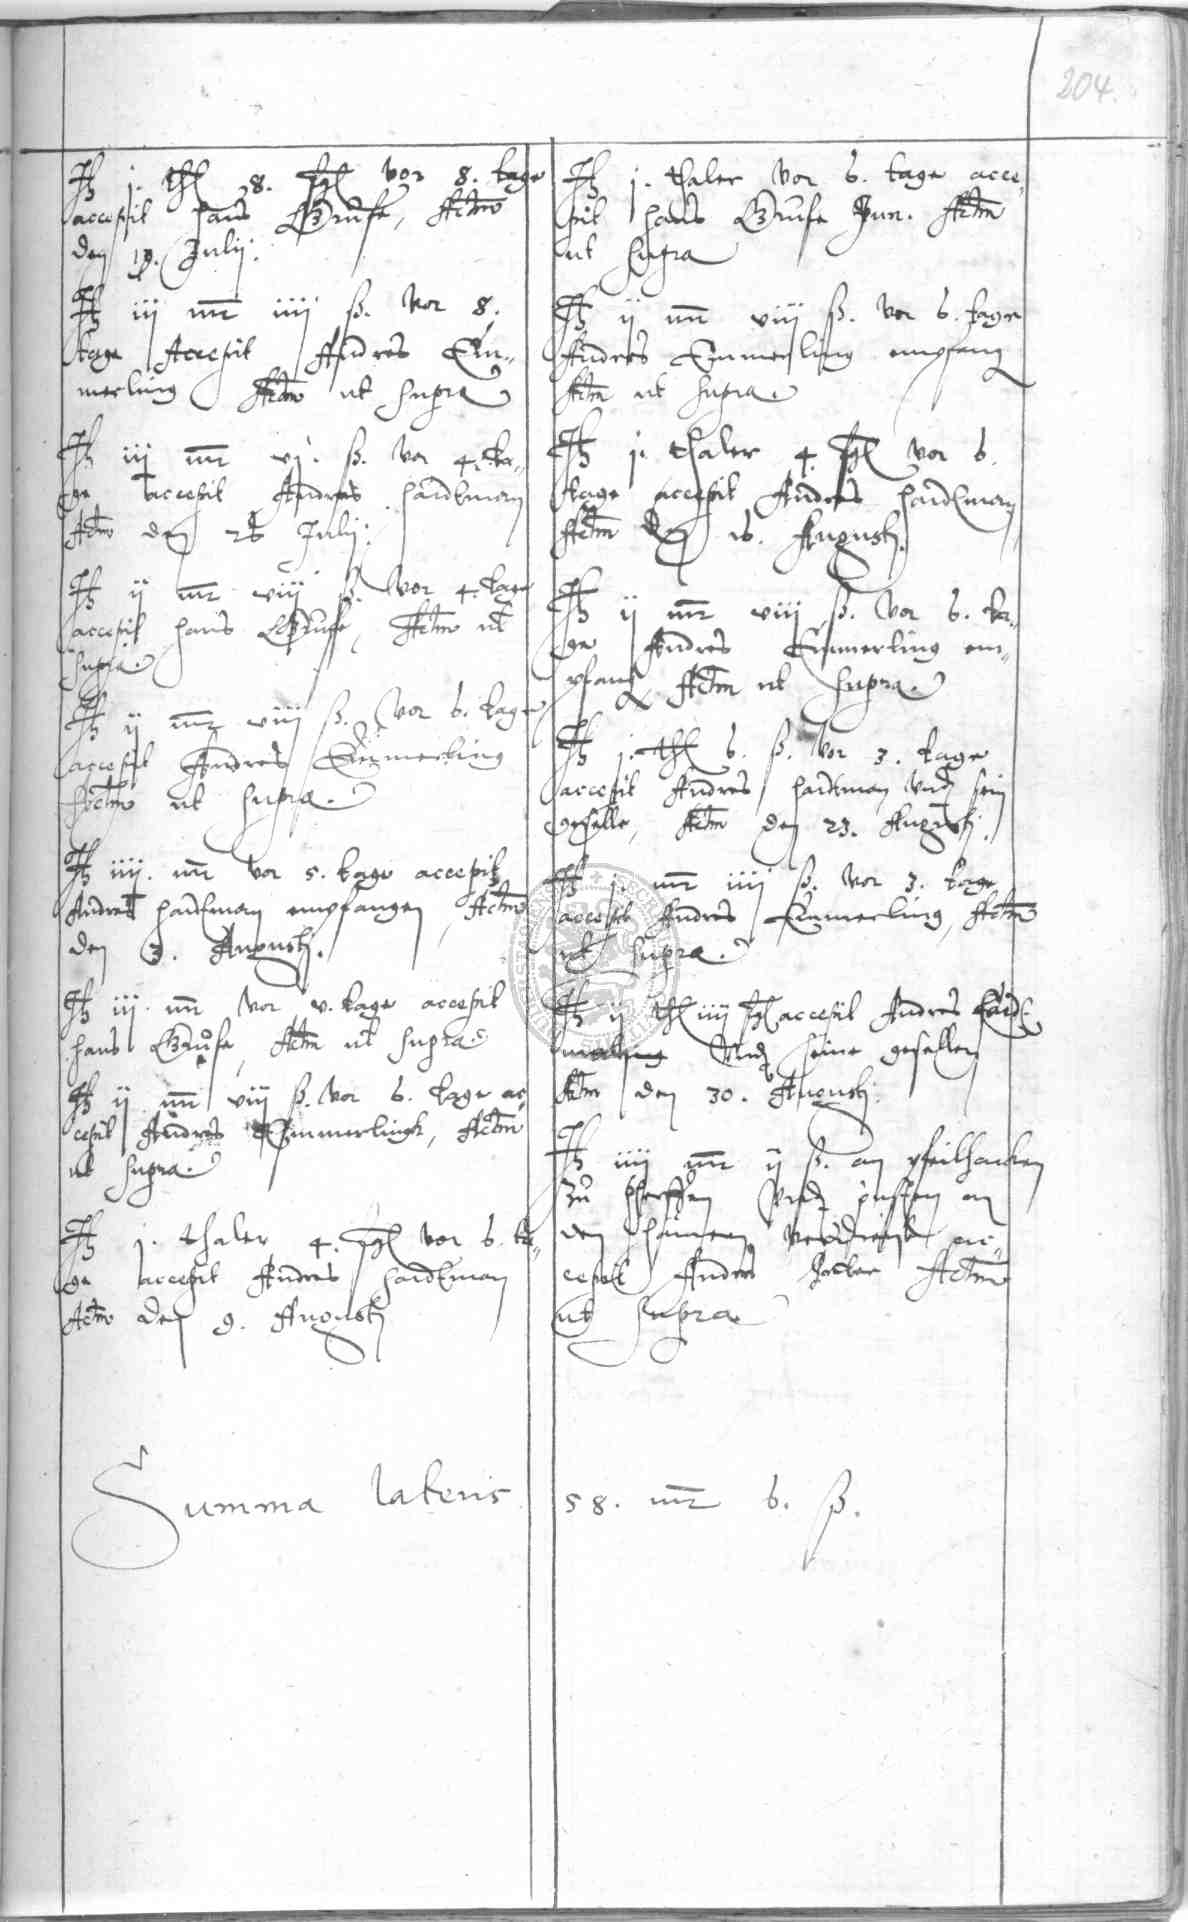 204.
It j. thl 8. sgl vor 8. tage
accepit hans Gruse, Actum
den 19. Julij.
It iij mr iiij ß. vor 8.
tage Accepit Andres Em-
merling Actm ut supra
It iij mr vj. ß. vor 4. ta-
ge accepit Andres hardtman
Actm den 26 Julij.
It ij mr viij ß. vor 4. tage
accepit hans Gruse, Actm ut
supra.
It ij mr viij ß. vor 6. tage
accepit Andres Emmerling
Actm ut supra.
It iiij. mr vor 5. tage accepit
Andres hardtman empfangen, Actm
den 3. Augusti.
It iij. mr vor v. tage accepit
hans Gruse, Actm ut supra.
It ij mr viij ß. vor 6. tage ac-
cepit Andres Emmerlingk, Actm
ut supra.
It j. thaler 4. sgl vor 6. ta-
ge accepit Andres hardtman
Actm den 9. Augusti
It j. thaler vor 6. tage acce-
pit hans Gruse Jun. Actm
ut supra
It ij mr viij ß. vor 6. tage
Andres Emmerling empfang
Actm ut supra.
It j. thaler 4. sgl vor 6.
tage accepit Andres hardtman
Actm den 16. Augusti.
It ij mr viij ß. vor 6. ta-
ge Andres Emmerling em-
pfang Actm ut supra.
It j. thl 6. ß. vor 3. tage
accepit Andres hardtman vnd sein
geselle, Actm den 23. Augusti.
It j. mr iiij ß. vor 3. tage
accepit Andres Emmerling, Actm
ut supra.
It ij thl iiij sgl accepit Andres
vnd seine gesellen
Actm den 30. Augusti.
It iiij mr ij ß. an pfeilhacken
zu scherffen vnd an
den verdienet ac-
cepit Andres Actm
ut supra
Summa lateris 58. mr 6. ß.